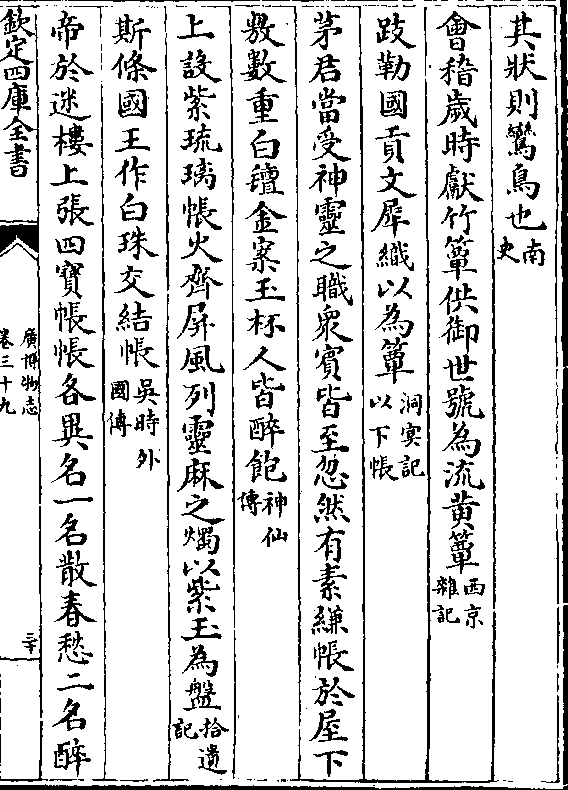 其狀則鸞鳥也南史
會稽歲時獻竹簟供御世號為流黄簟西京雜記
跂勒國貢文犀織以為簟洞𡨕記以下帳
茅君當受神靈之職衆賓皆至忽然有素縑帳於屋下
敷數重白氊金案玉杯人皆醉飽神仙傳
上設紫琉璃帳火齊屏風列靈麻之燭以紫玉為盤拾遺記
斯條國王作白珠交結帳吳時外國傳
帝於迷樓上張四寶帳帳各異名一名散春愁二名醉
欽定四庫全書
廣博物志
卷三十九
三十